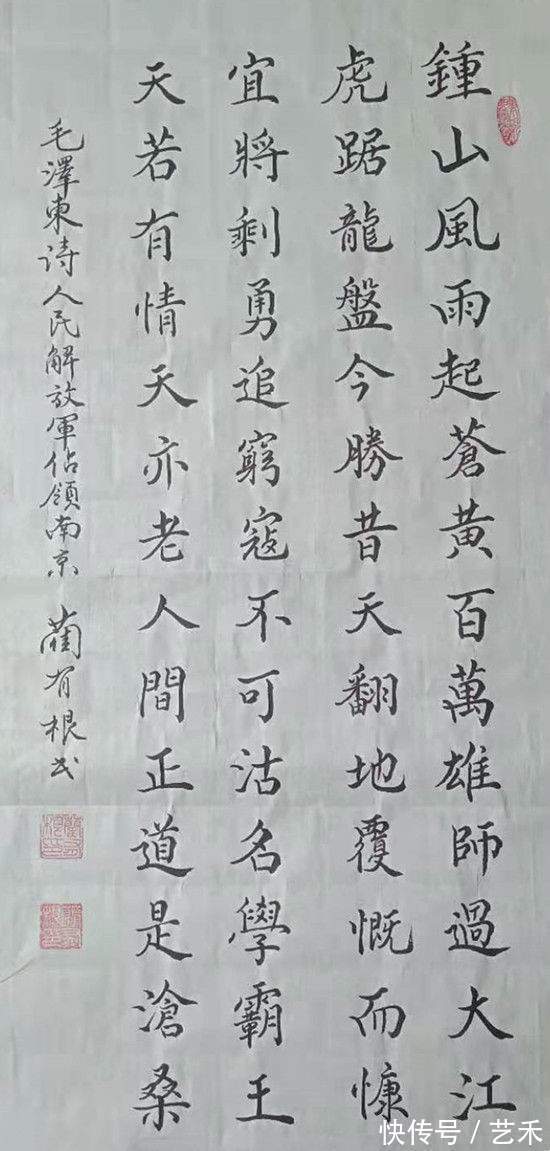 鍾山風雨起蒼黄百萬雄師過大江
虎踞龍盤今勝昔天翻地覆慨而慷
宜將剩勇追窮寇不可沽名學霸王
天若有情天亦老人間正道是滄桑
毛澤東诗人民解放軍佔領南京 蔺有根书
快传号/艺禾